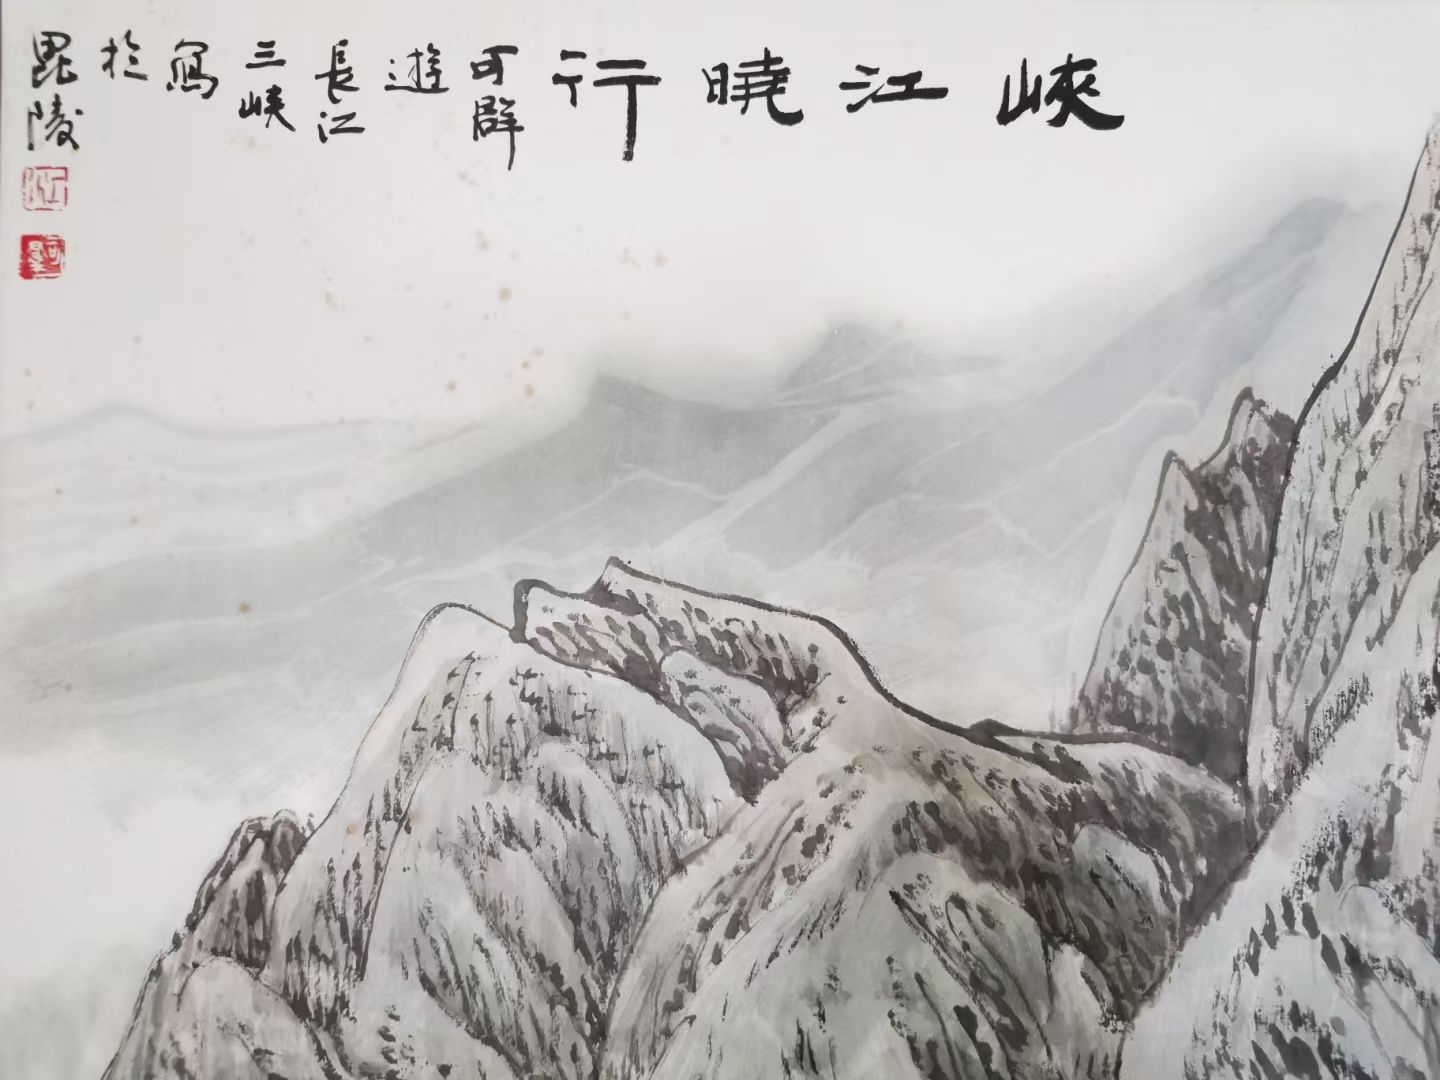 峽江曉行
可辟
遊
長江
三峽
寫
於
毘陵